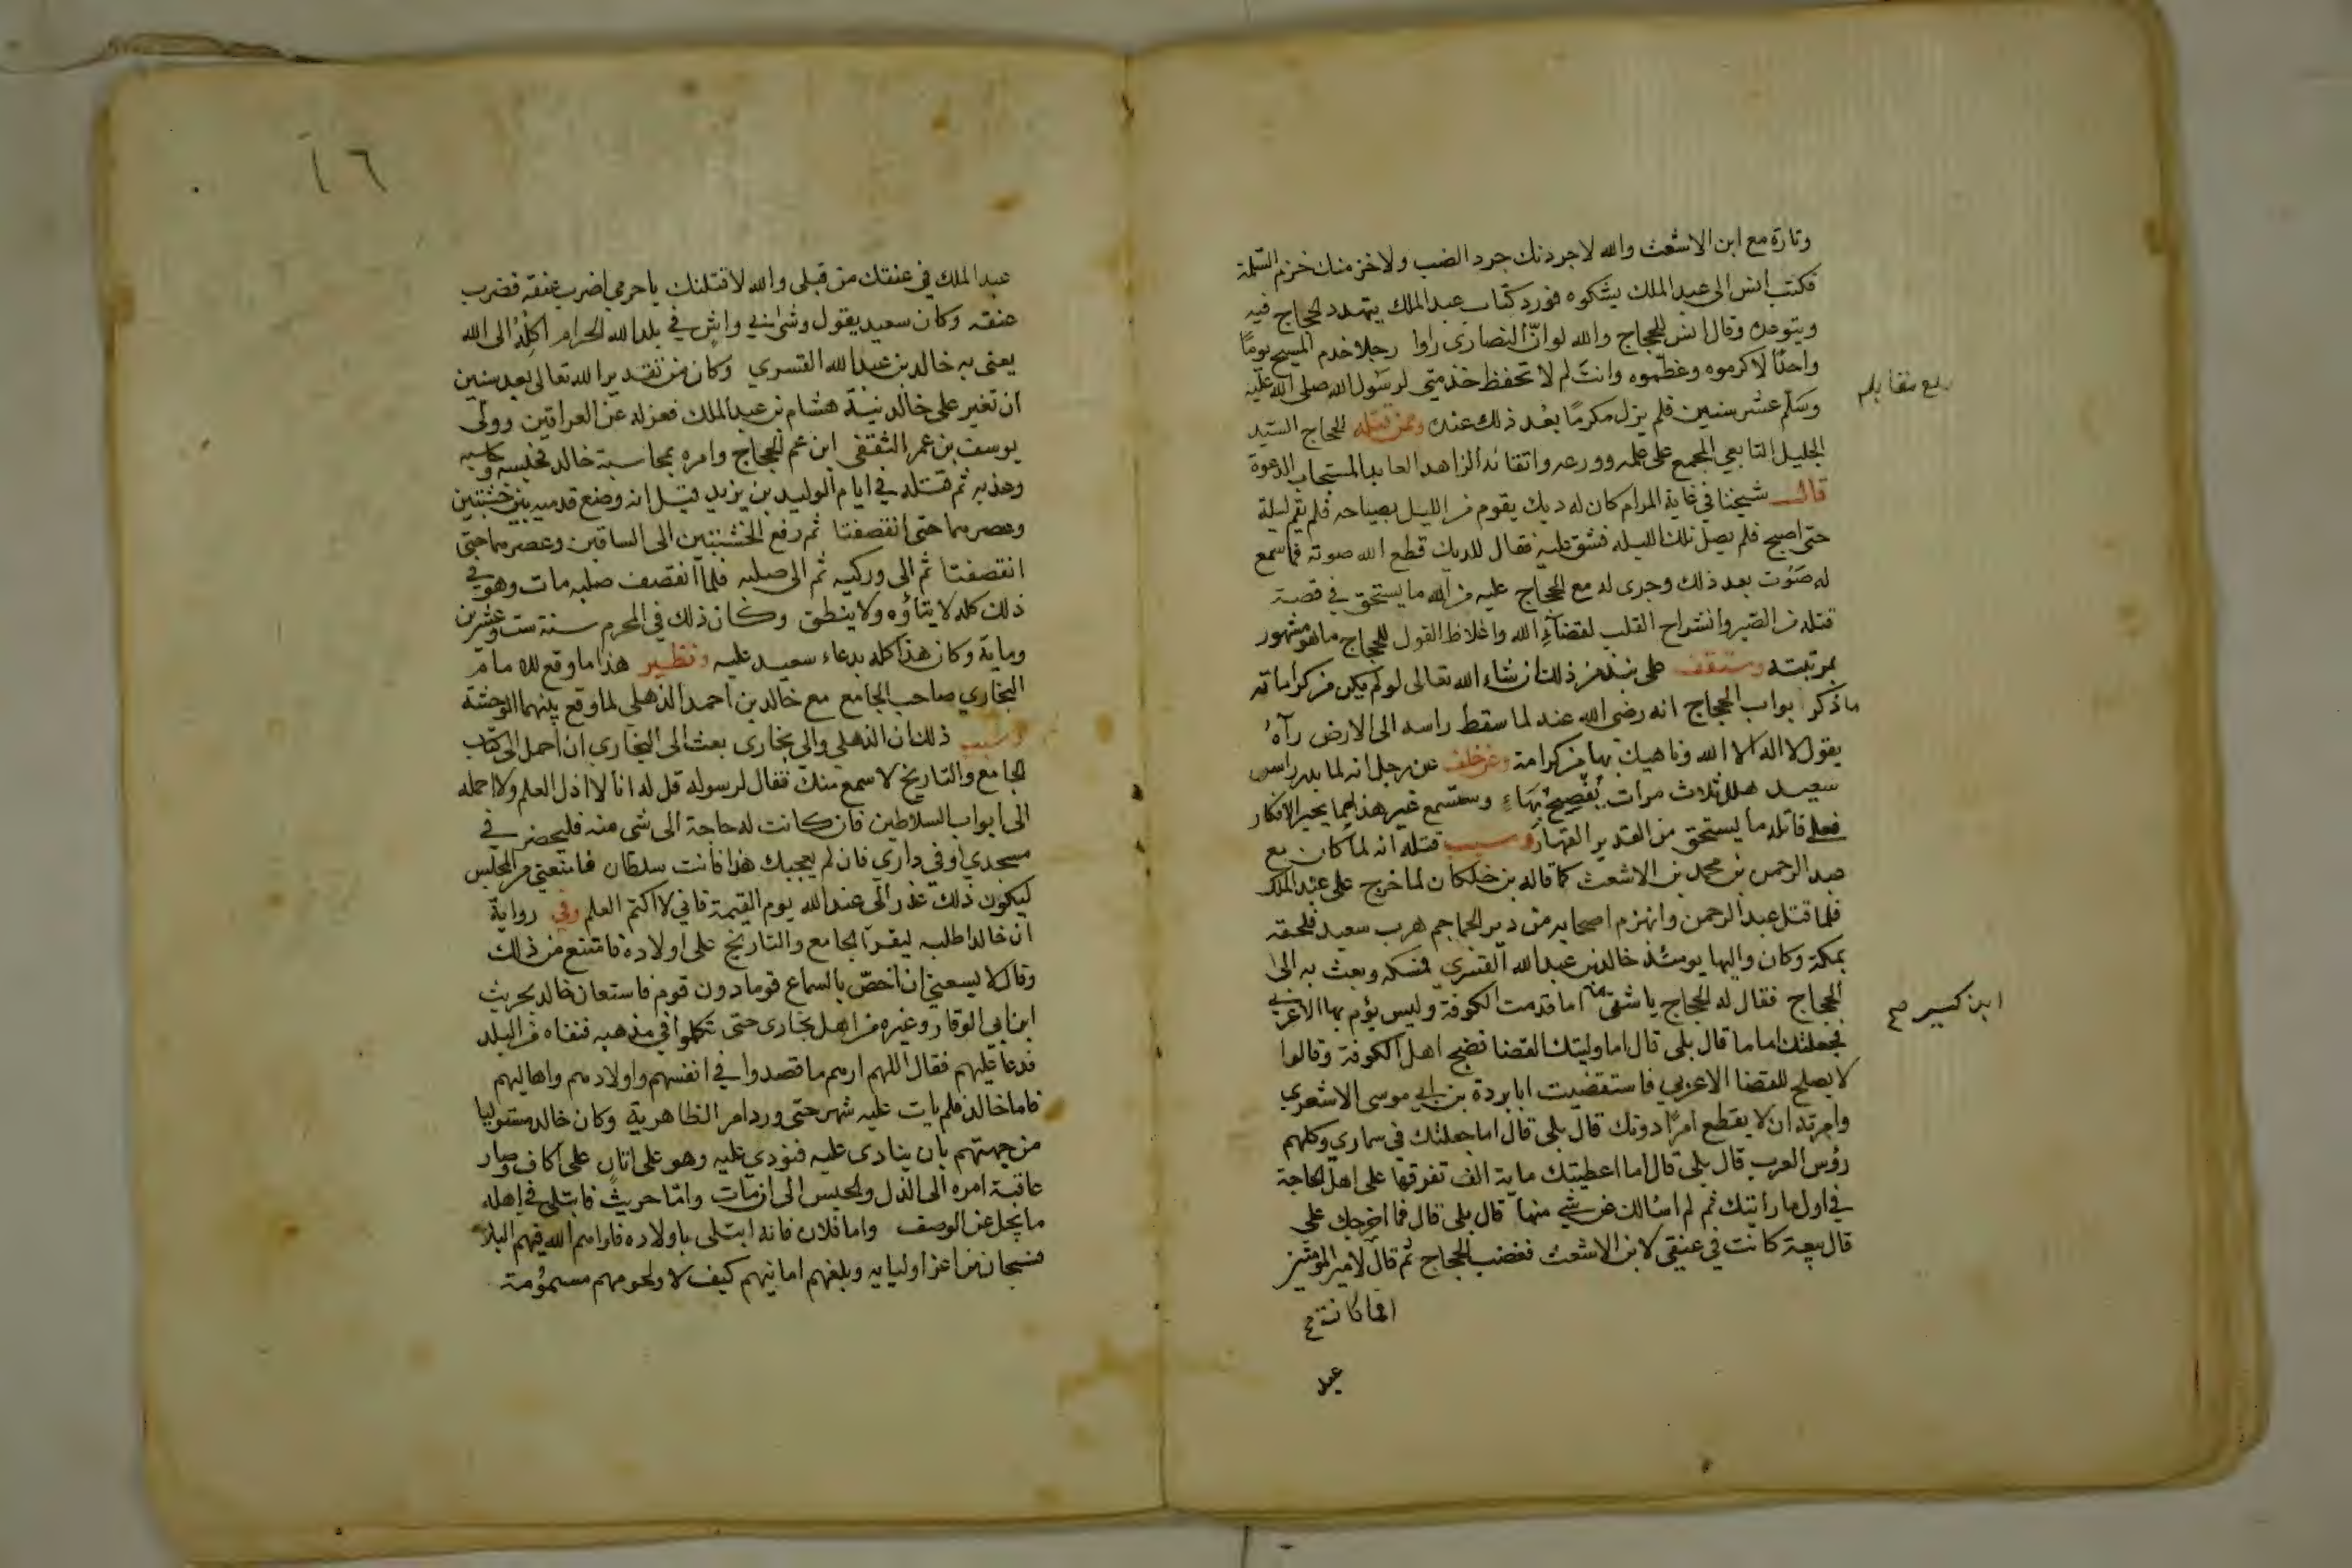 وتارة مع ابن الاشعث والله لاجردنك جرد الضب ولاخزمنك خزم السلمة
فكتب انس الى عبد الملك يشكوه فورد كتاب عبد الملك يتهدد الحجاج فيه
ويتوعده وقال انس للحجاج والله لو ان النصارى راوا رجلا خدم المسيح يوما
واحدا لاكرموه وعظموه وانت لم لا تحفظ خدمتي لرسول الله صلى الله عليه
بلغ مقابله
وسلم عشر سنين فلم يزل مكرما بعد ذلك عنده وممن قتله الحجاج السيد
الجليل التابعي المجمع على علمه وورعه واتقائه الزاهد العابد المستجاب الدعوة
قال شيخنا في غاية المرام كان له ديك يقوم من الليل بصياحه فلم يقم ليلة
حتى اصبح فلم يصل تلك الليله فشق عليه فقال للديك قطع الله صوته فما سمع
له صوت بعد ذلك وجرى له مع الحجاج عليه من الله ما يستحق في قصة
قتله من الصبر وانشراح القلب لقضاء الله واغلاظ القول للحجاج ما هو مشهور
بمرتبته وستقف على نبذ من ذلك ان شاء الله تعالى لو لم يكن من كراماته
ما ذكر بواب الحجاج انه رضي الله عنه لما سقط راسه الى الارض رآه
يقول لا اله الا الله وناهيك بها من كرامة وعن خلف عن رجل انه لما بدر راس
سعيد هلل ثلاث مرات يفصح بهاء وستسمع غير هذا مما يحير الافكار
فعلى قاتله ما يستحق من القدير القهار وسبب قتله انه لما كان مع
عبد الرحمن بن محمد بن الاشعث كما قاله بن خلكان لما خرج على عبد الملك
فلما قتل عبد الرحمن وانهزم اصحابه من دير الجماجم هرب سعيد فلحقه
بمكة وكان واليها يومئذ خالد بن عبد الله القسري فمسكه وبعث به الى
الحجاج فقال له الحجاج يا شقي اما قدمت الكوفة وليس يؤم بها الا عربي
ابن كسير صح
فجعلتك اماما قال بلى قال اما وليتك القضا فضج اهل الكوفة وقالوا
لا يصلح للقضا الا عربي فاستقضيت ابا بردة بن ابي موسى الاشعري
وامرته ان لا يقطع امرا دونك قال بلى قال اما جعلتك في سماري وكلهم
رؤس العرب قال بلى قال اما اعطيتك ماية الف تفرقها على اهل الحاجة
في اول ما رايتك ثم لم اسالك عن شي منها قال بلى قال فما اخرجك علي
قال بيعة كانت في عنقي لابن الاشعث فغضب الحجاج ثم قال لامير المؤمنين
افما كانت
عبد
١٦
عبد الملك في عنقك من قبلي والله لاقتلنك يا حرمي اضرب عنقه فضرب
عنقه وكان سعيد يقول وشى بي واش في بلد الله الحرام اكله الى الله
يعني به خالد بن عبد الله القسري وكان من تقدير الله تعالى بعد سنين
ان تغير على خالد نية هشام بن عبد الملك فعزله عن العراقين وولى
يوسف بن عمر الثقفي ابن عم الحجاج وامره بمحاسبة خالد فحبسه وحاسبه
وعذبه ثم قتله في ايام الوليد بن يزيد قيل انه وضع قدميه بين خشبتين
وعصرهما حتى انقصفتا ثم رفع الخشبتين الى الساقين وعصرهما حتى
انقصفتا ثم الى وركيه ثم الى صلبه فلما انقصف صلبه مات وهو في
ذلك كله لا يتاؤه ولا ينطق وكان ذلك في المحرم سنة ست وعشرين
وماية وكان هذا كله بدعاء سعيد عليه ونظير هذا ما وقع
البخاري صاحب الجامع مع خالد بن احمد الذهلي لما وقع بينهما الوحشة
وسبب ذلك ان الذهلي والي بخارى بعث الى البخاري ان احمل الي كتاب
الجامع والتاريخ لاسمع منك فقال لرسوله قل له انا لا اذل العلم ولا احمله
الى ابواب السلاطين فان كانت له حاجة الى شى منه فليحضر في
مسجدي او في داري فان لم يعجبك هذا فانت سلطان فامنعني من المجلس
ليكون ذلك عذر الي عند الله يوم القيمة فاني لا اكتم العلم وفي رواية
ان خالدا طلبه ليقرا الجامع والتاريخ على اولاده فامتنع من ذلك
وقال لا يسعني ان اخص بالسماع قوما دون قوم فاستعان خالد بحريث
ابن ابي الوقار وغيره من اهل بخارى حتى تكلموا في مذهبه فنفاه من البلد
فدعا عليهم فقال اللهم ارهم ما قصدوا في انفسهم واولادهم واهاليهم
فاما خالد فلم يات عليه شهر حتى ورد امر الظاهرية وكان خالد متوليا
من جهتهم بان ينادى عليه فنودي عليه وهو على اتان على اكاف وصار
عاقبة امره الى الذل والحبس الى ان مات واما حريث فابتلي في اهله
ما يجل عن الوصف واما فلان فانه ابتلى باولاده فاراهم الله فيهم البلا
فسبحان من اعز اوليايه وبلغهم امانيهم كيف لا ولحومهم مسمومة